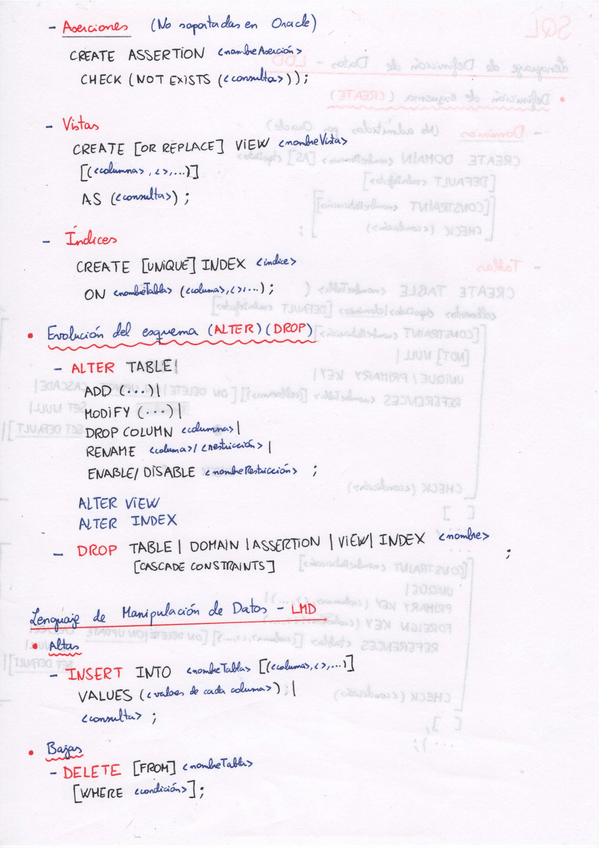 - Aserciones (No soportadas en Oracle)
CREATE ASSERTION <nombreAserción>
CHECK (NOT EXISTS (<consulta>));
- Vistas
CREATE [OR REPLACE] VIEW <nombreVista>
[(<columna>, <>,...)]
AS (<consulta>);
- Índices
CREATE [UNIQUE] INDEX <índice>
ON <nombreTabla> (<columna>,<>...);
• Evolución del esquema (ALTER) (DROP)
- ALTER TABLE|
ADD (...)|
MODIFY (...)|
DROP COLUMN <columna>|
RENAME <columna>/<restricción>|
ENABLE/DISABLE <nombreRestricción> ;
ALTER VIEW
ALTER INDEX
- DROP TABLE | DOMAIN | ASSERTION | VIEW | INDEX <nombre>
[CASCADE CONSTRAINTS] ;
Lenguaje de Manipulación de Datos - LMD
• Altas
- INSERT INTO <nombreTabla> [(<columna>,<>,...)]
VALUES (<valores de cada columna>) |
<consulta> ;
• Bajas
- DELETE [FROM] <nombreTabla>
[WHERE <condición>];